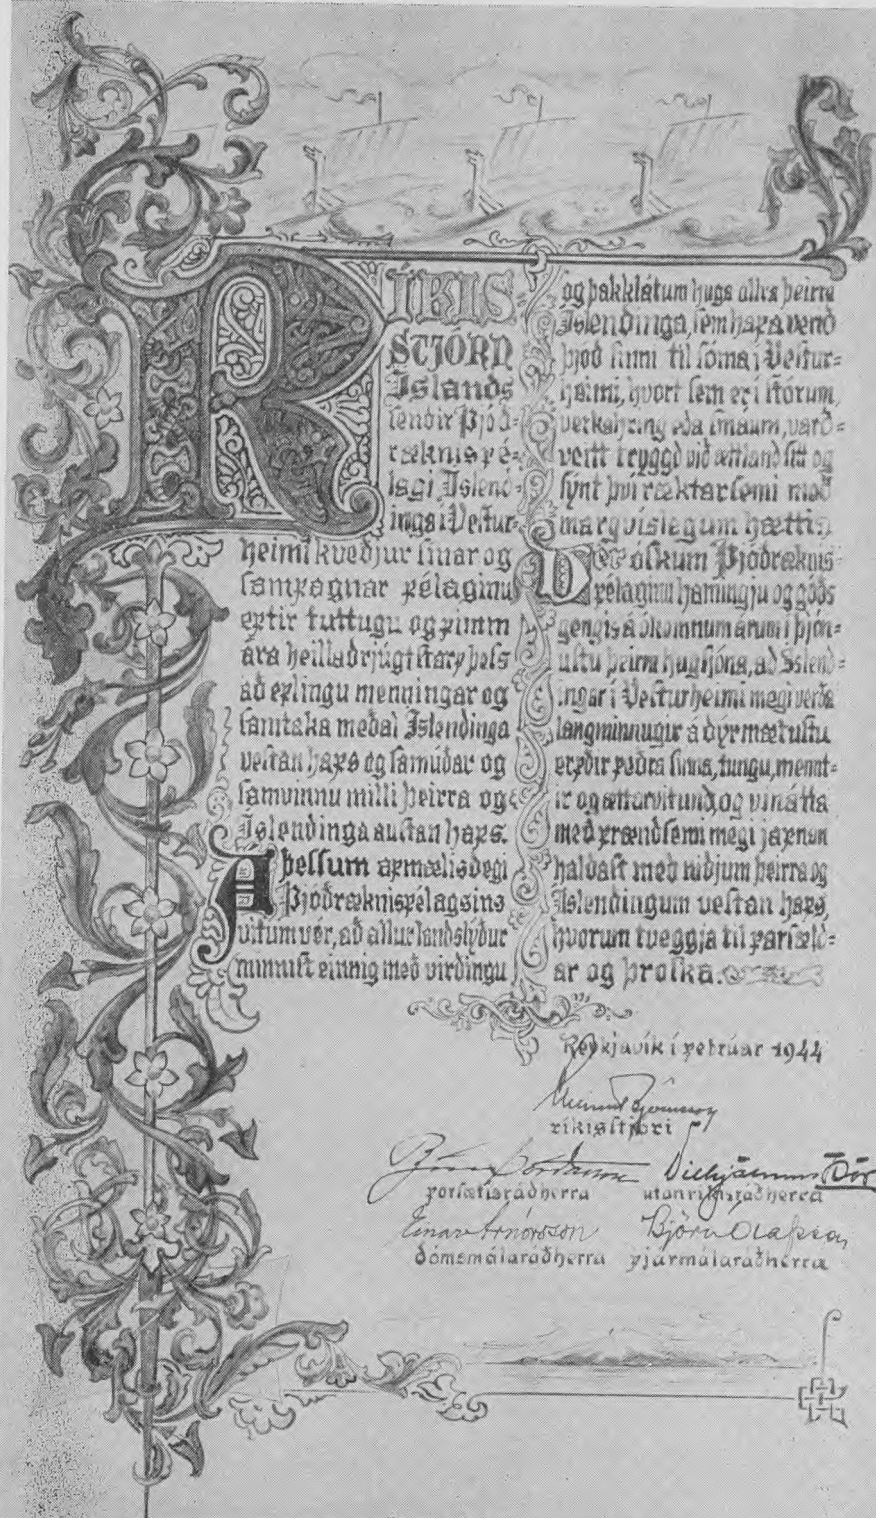 RÍKIS-
STJÓRN
Íslands
sendir Þjóð-
ræknisfé-
lagi Íslend-
inga í Vestur-
heimi kveðjur sínar og
samfagnar félaginu
eftir tuttugu og fimm
ára heilladrjúgt starf þess
að eflingu menningar og
samtaka meðal Íslendinga
vestan hafs og samúðar og
samvinnu milli þeirra og
Íslendinga austan hafs.
Á þessum afmælisdegi
Þjóðræknisfélagsins
vitum vér, að allur landslýður
minnist einnig með virðingu
og þakklátum huga allra þeirra
Íslendinga, sem hafa verið
þjóð sinni til sóma í Vestur-
heimi, hvort sem er í stórum
verkahring eða smáum, varð-
veitt tryggð við ættland sitt og
sýnt því ræktarsemi með
margvíslegum hætti.
Vér óskum Þjóðræknis-
félaginu hamingju og góðs
gengis á ókomnum árum í þjón-
ustu þeirra hugsjóna, að Íslend-
ingar í Vesturheimi megi verða
langminnugir á dýrmætustu
erfðir feðra sinna, tungu, mennt-
ir og ættarvitund, og vinátta
með frændsemi megi jafnan
haldast með niðjum þeirra og
Íslendingum vestan hafs,
hvorum tveggja til farsæld-
ar og þroska.
Reykjavík í febrúar 1944
Sveinn Björnsson
ríkisstjóri
Björn Þórðarson Vilhjálmur Þór
forsætisráðherra utanríkisráðherra
Einar Arnórsson Björn Ólafsson
dómsmálaráðherra fjármálaráðherra